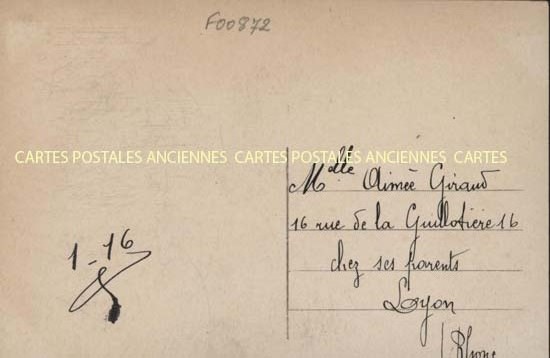 F00872
CARTES POSTALES ANCIENNES CARTES POSTALES ANCIENNES CARTES
Mdlle Aimée Giraud
16 rue de la Guillotière 16
chez ses parents
Lyon
Rhône
1-16